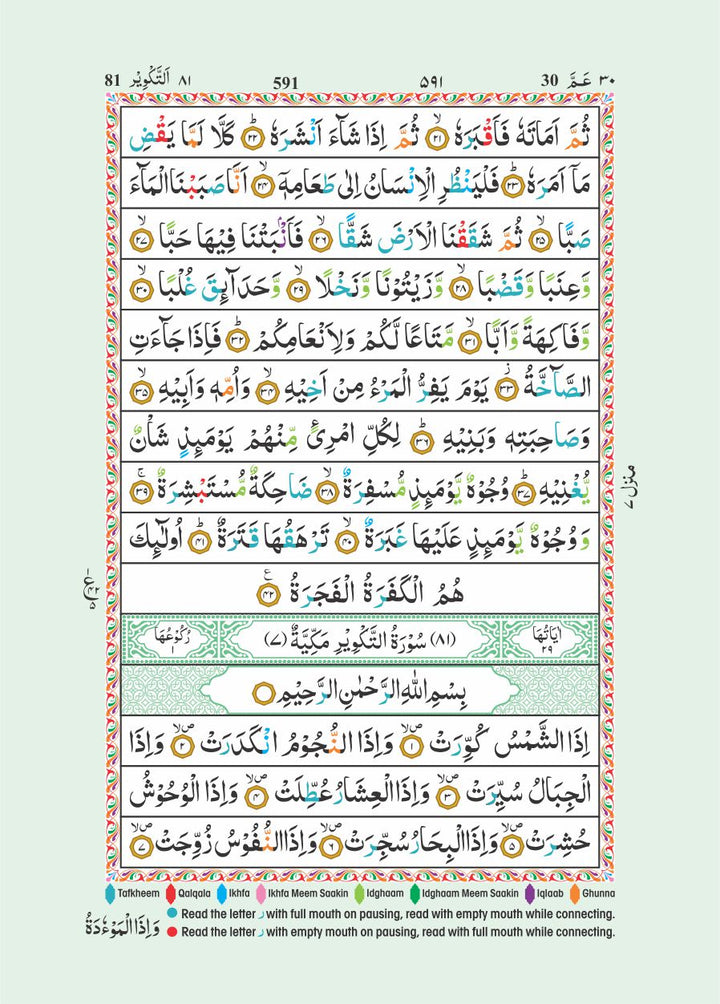 81 اَلتَّكْوِيْر ٨١ 591 ٥٩١ 30 عَمَّ ٣٠
ثُمَّ اَمَاتَهٗ فَاَقْبَرَهٗ ۙ‏﴿۲۱﴾ ثُمَّ اِذَا شَآءَ اَنْشَرَهٗ ؕ‏﴿۲۲﴾ كَلَّا لَمَّا يَقْضِ
مَاۤ اَمَرَهٗ ؕ‏﴿۲۳﴾ فَلْيَنْظُرِ الْاِنْسَانُ اِلٰى طَعَامِهٖۤ ۙ‏﴿۲۴﴾ اَنَّا صَبَبْنَا الْمَآءَ
صَبًّا ۙ‏﴿۲۵﴾ ثُمَّ شَقَقْنَا الْاَرْضَ شَقًّا ۙ‏﴿۲۶﴾ فَاَنْۢبَتْنَا فِيْهَا حَبًّا ۙ‏﴿۲۷﴾
وَّ عِنَبًا وَّقَضْبًا ۙ‏﴿۲۸﴾ وَّزَيْتُوْنًا وَّنَخْلًا ۙ‏﴿۲۹﴾ وَّحَدَآئِقَ غُلْبًا ۙ‏﴿۳۰﴾
وَّفَاكِهَةً وَّاَبًّا ۙ‏﴿۳۱﴾ مَّتَاعًا لَّكُمْ وَلِاَنْعَامِكُمْ ؕ‏﴿۳۲﴾ فَاِذَا جَآءَتِ
الصَّآخَّةُ ۫‏﴿۳۳﴾ يَوْمَ يَفِرُّ الْمَرْءُ مِنْ اَخِيْهِ ۙ‏﴿۳۴﴾ وَاُمِّهٖ وَاَبِيْهِ ۙ‏﴿۳۵﴾
وَصَاحِبَتِهٖ وَبَنِيْهِ ؕ‏﴿۳۶﴾ لِكُلِّ امْرِیًٴ مِّنْهُمْ يَوْمَئِذٍ شَاْنٌ
يُّغْنِيْهِ ؕ‏﴿۳۷﴾ وُجُوْهٌ يَّوْمَئِذٍ مُّسْفِرَةٌ ۙ‏﴿۳۸﴾ ضَاحِكَةٌ مُّسْتَبْشِرَةٌ ۚ‏﴿۳۹﴾
وَ وُجُوْهٌ يَّوْمَئِذٍ عَلَيْهَا غَبَرَةٌ ۙ‏﴿۴۰﴾ تَرْهَقُهَا قَتَرَةٌ ؕ‏﴿۴۱﴾ اُولٰٓئِكَ
هُمُ الْكَفَرَةُ الْفَجَرَةُ ‏﴿۴۲﴾ ع
ع ٤٢ ٥
منزل ٧
اٰيَاتُهَا ٢٩ (٨١) سُوْرَةُ التَّكْوِيْرِ مَكِّيَّةٌ (٧) رُكُوْعُهَا ١
بِسْمِ اللّٰهِ الرَّحْمٰنِ الرَّحِيْمِ
اِذَا الشَّمْسُ كُوِّرَتْ ۙ‏ص ﴿۱﴾ وَاِذَا النُّجُوْمُ انْكَدَرَتْ ۙ‏ص ﴿۲﴾ وَاِذَا
الْجِبَالُ سُيِّرَتْ ۙ‏ص ﴿۳﴾ وَاِذَا الْعِشَارُ عُطِّلَتْ ۙ‏ص ﴿۴﴾ وَاِذَا الْوُحُوْشُ
حُشِرَتْ ۙ‏ص ﴿۵﴾ وَاِذَا الْبِحَارُ سُجِّرَتْ ۙ‏ص ﴿۶﴾ وَاِذَا النُّفُوْسُ زُوِّجَتْ ۙ‏ص ﴿۷﴾
Tafkheem Qalqala Ikhfa Ikhfa Meem Saakin Idghaam Idghaam Meem Saakin Iqlaab Ghunna
Read the letter ر with full mouth on pausing, read with empty mouth while connecting.
Read the letter ر with empty mouth on pausing, read with full mouth while connecting.
وَاِذَا الْمَوْءٗدَةُ